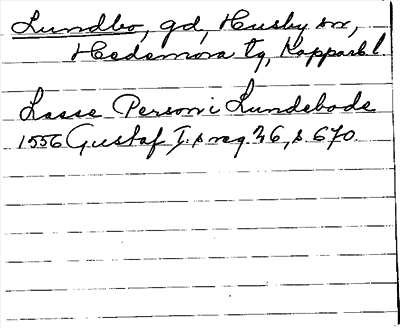 Lundbo, gd, Husby sn,
Hedemora tg, Kopparb. l.
Lasse Person i Lundebode
1556 Gustaf I:s reg. 26, s. 670.